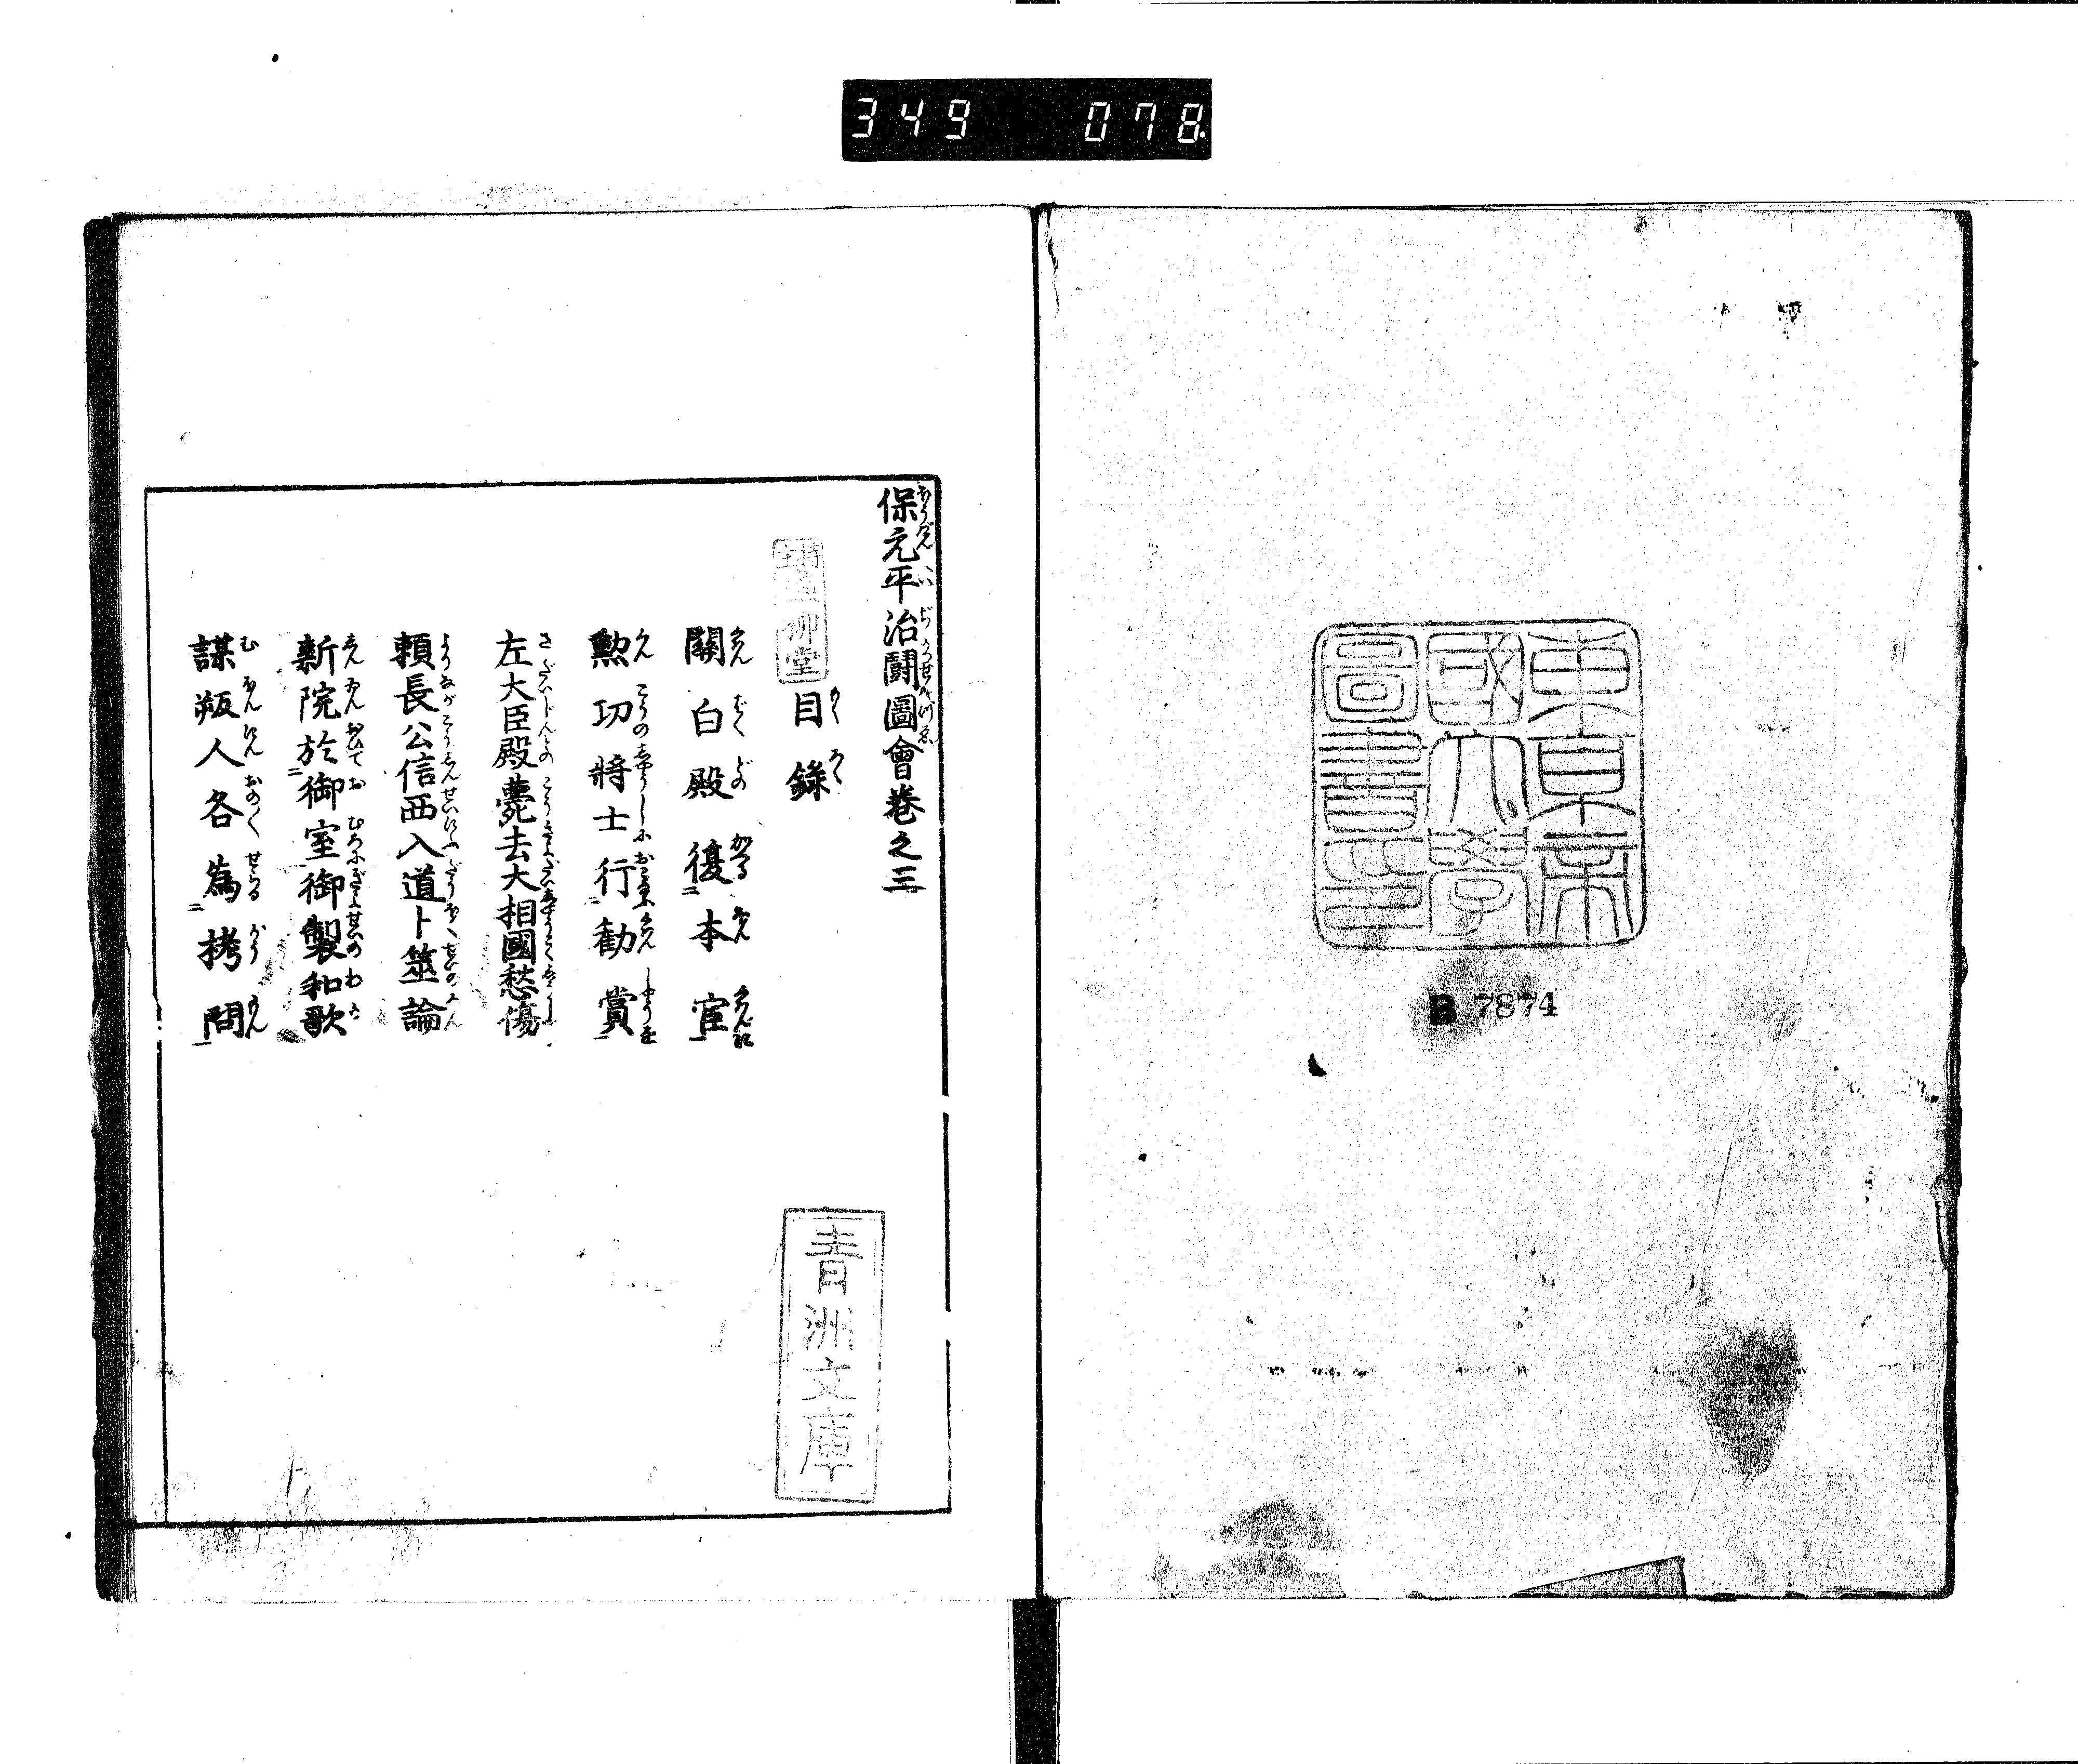 349 078
東京帝
國大學
圖書印
B 7874
保元平治闘圖會卷之三
目錄
關白殿復本官
勲功將士行勧賞
左大臣殿薨去大相國愁傷
頼長公信西入道卜筮論
新院於御室御製和歌
謀叛人各為拷問
柳堂
青洲文庫